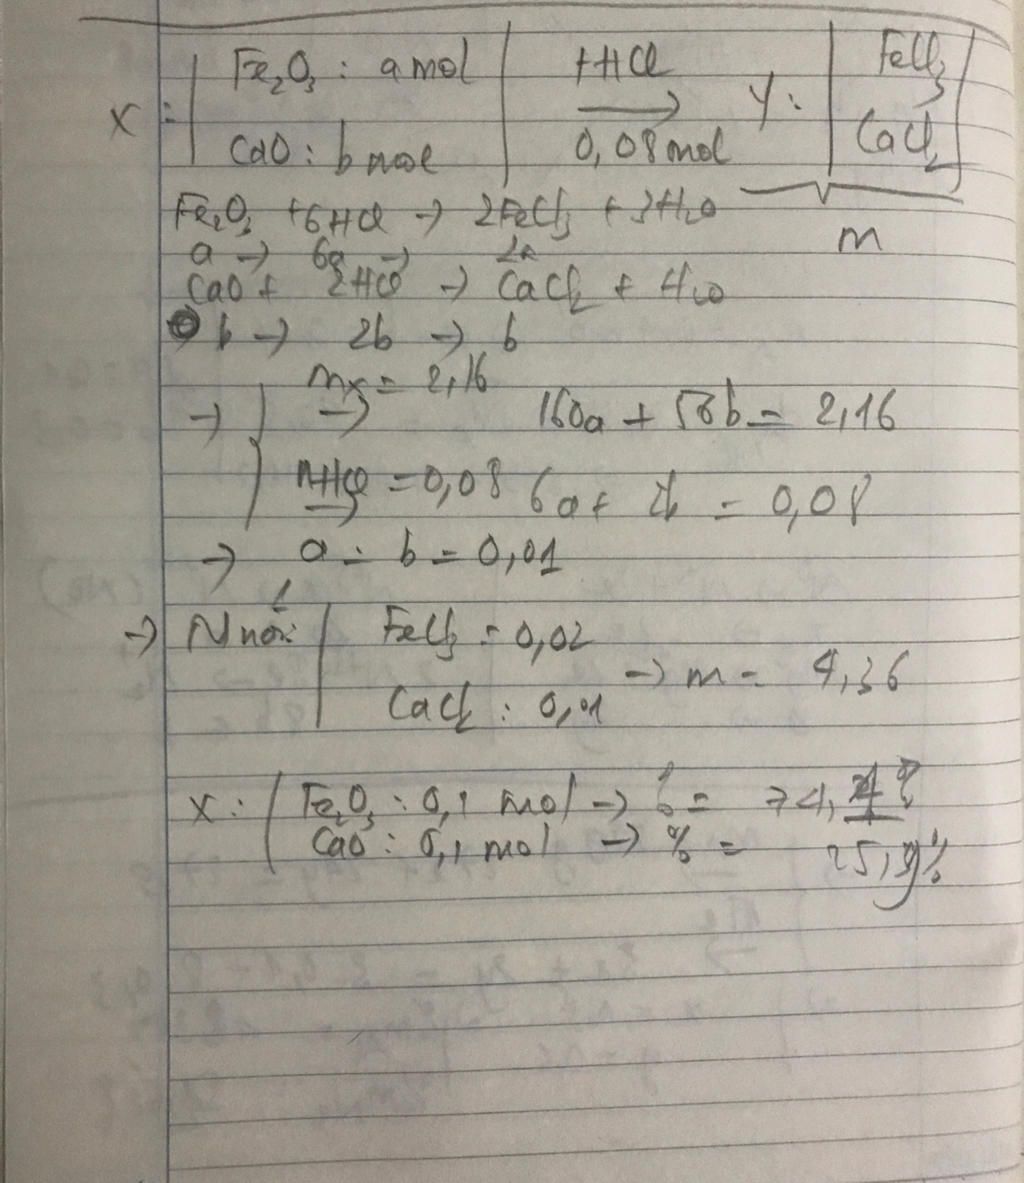 X: Fe₂O₃ : a mol +HCl Y: FeCl₃
CaO : b mol → 0,08 mol CaCl₂
Fe₂O₃ + 6HCl → 2FeCl₃ + 3H₂O
m
a → 6a → 2a
CaO + 2HCl → CaCl₂ + H₂O
b → 2b → b
mx = 2,16
→ → 160a + 56b = 2,16
nHCl = 0,08 → 6a + 2b = 0,08
→ a = b = 0,01
→ Muối FeCl₃ = 0,02
CaCl₂ : 0,01 → m = 4,36
X: Fe₂O₃ : 0,1 mol → % = 74,
CaO : 0,1 mol → % = 25,9%